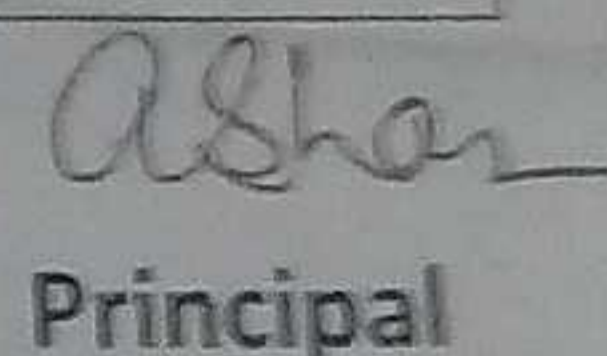 Asha
Principal